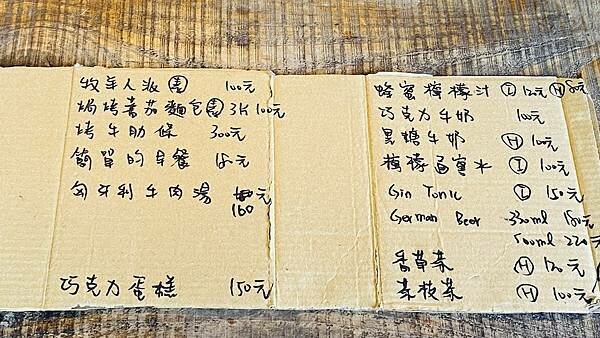 牧羊人派 圓 100元
焗烤番茄麵包圓 3片 100元
烤牛肋條 300元
簡單的早餐
匈牙利牛肉湯 元
160
巧克力蛋糕 150元
蜂蜜檸檬汁 Ⓘ 120元 Ⓗ 80元
巧克力牛奶 100元
黑糖牛奶 Ⓗ 100元
檸檬 Ⓘ 100元
Gin Tonic Ⓘ 150元
German Beer 330ml 180元
500ml 220元
香草茶 Ⓗ 120元
Ⓗ 100元